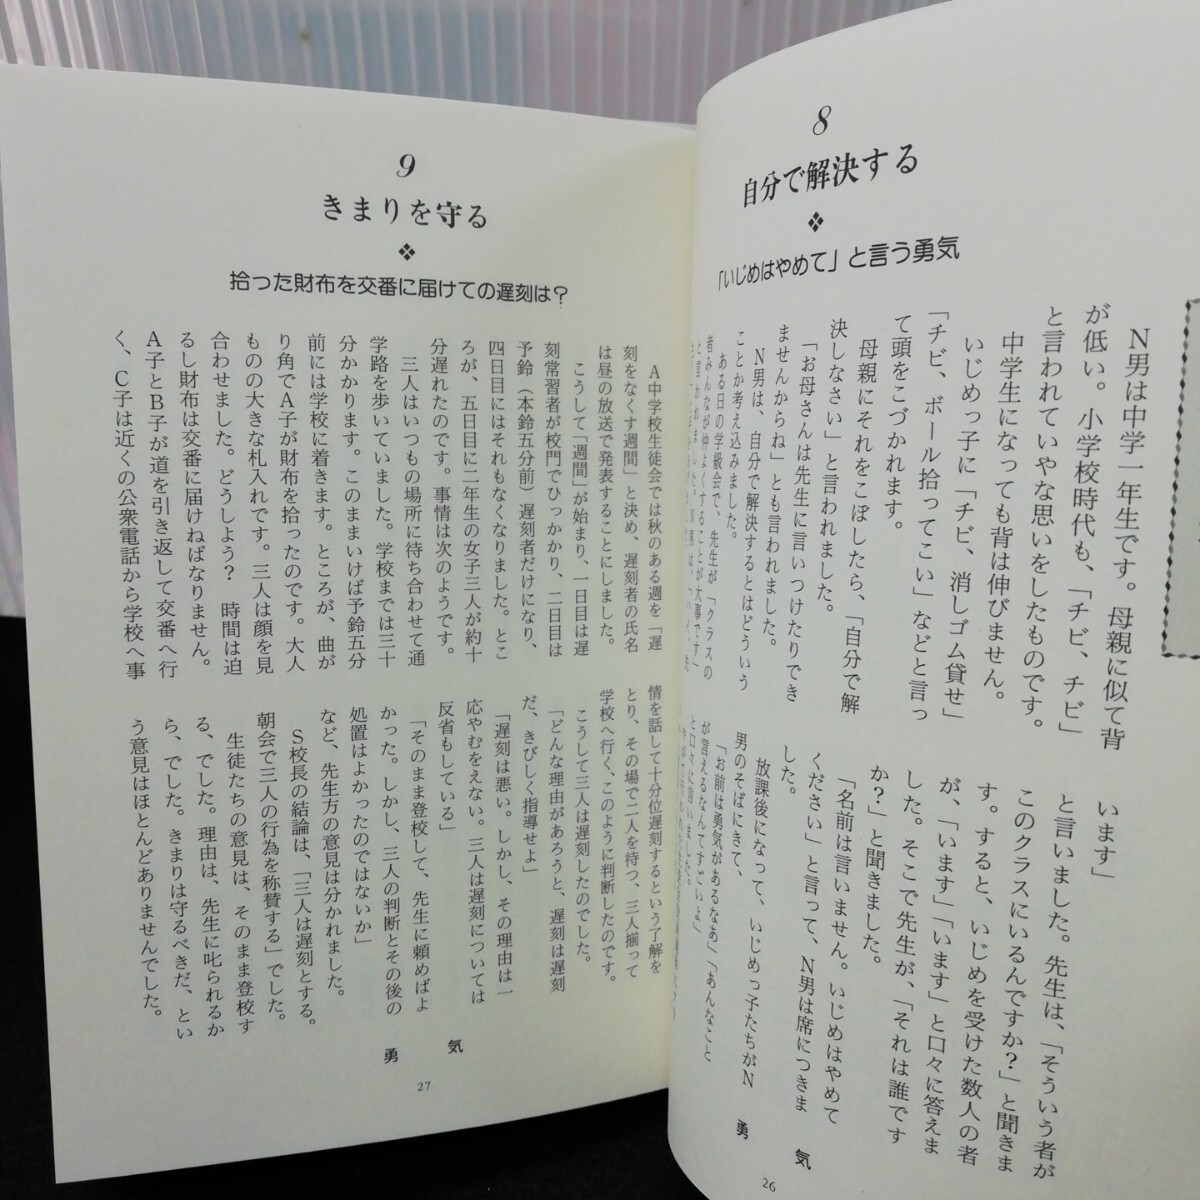 8
自分で解決する
❖
「いじめはやめて」と言う勇気
N男は中学一年生です。母親に似て背
が低い。小学校時代も、「チビ、チビ」
と言われていやな思いをしたものです。
中学生になっても背は伸びません。
いじめっ子に「チビ、消しゴム貸せ」
「チビ、ボール拾ってこい」などと言っ
て頭をこづかれます。
母親にそれをこぼしたら、「自分で解
決しなさい」と言われました。
「お母さんは先生に言いつけたりでき
ませんからね」とも言われました。
N男は、自分で解決するとはどういう
ことか考え込みました。
ある日の学級会で、先生が「クラスの
者みんなが仲よくすることが大事です」
と言われました。N男は、
います」
と言いました。先生は、「そういう者が
このクラスにいるんですか?」と聞きま
す。すると、いじめを受けた数人の者
が、「います」「います」と口々に答えま
した。そこで先生が、「それは誰です
か?」と聞きました。
「名前は言いません。いじめはやめて
ください」と言って、N男は席につきま
した。
放課後になって、いじめっ子たちがN
男のそばにきて、
「お前は勇気があるなあ」「あんなこと
が言えるなんてすごいよ」
と口々に言いました。
勇 気
26
9
きまりを守る
❖
拾った財布を交番に届けての遅刻は?
A中学校生徒会では秋のある週を「遅
刻をなくす週間」と決め、遅刻者の氏名
は昼の放送で発表することにしました。
こうして「週間」が始まり、一日目は遅
刻常習者が校門でひっかかり、二日目は
予鈴(本鈴五分前)遅刻者だけになり、
四日目にはそれもなくなりました。とこ
ろが、五日目に二年生の女子三人が約十
分遅れたのです。事情は次のようです。
三人はいつもの場所に待ち合わせて通
学路を歩いていました。学校までは三十
分かかります。このままいけば予鈴五分
前には学校に着きます。ところが、曲が
り角でA子が財布を拾ったのです。大人
ものの大きな札入れです。三人は顔を見
合わせました。どうしよう? 時間は迫
るし財布は交番に届けねばなりません。
A子とB子が道を引き返して交番へ行
く、C子は近くの公衆電話から学校へ事
情を話して十分位遅刻するという了解を
とり、その場で二人を待つ、三人揃って
学校へ行く、このように判断したのです。
こうして三人は遅刻したのでした。
「どんな理由があろうと、遅刻は遅刻
だ、きびしく指導せよ」
「遅刻は悪い。しかし、その理由は一
応やむをえない。三人は遅刻については
反省もしている」
「そのまま登校して、先生に頼めばよ
かった。しかし、三人の判断とその後の
処置はよかったのではないか」
など、先生方の意見は分かれました。
S校長の結論は、「三人は遅刻とする。
朝会で三人の行為を称賛する」でした。
生徒たちの意見は、そのまま登校す
る、でした。理由は、先生に叱られるか
ら、でした。きまりは守るべきだ、とい
う意見はほとんどありませんでした。
勇 気
27